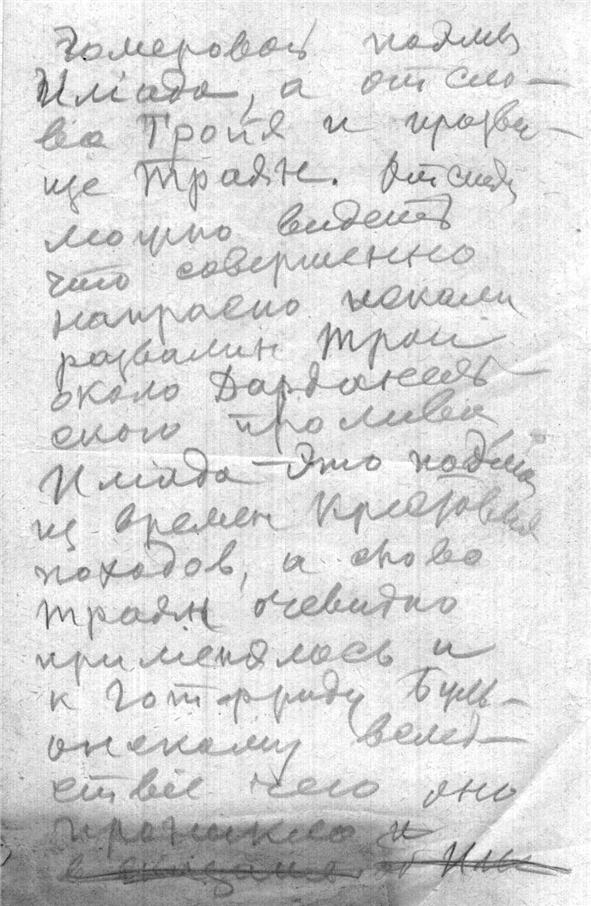 Гомеровой поэмы
Илиада, а от сло-
ва Троя и прозви-
ще Траян. Отсюда
можно видеть
что совершенно
напрасно искали
развалин Трои
около Дарданель-
ского пролива,
Илиада - это поэма
из времен Крестовых
походов, а слово
траян очевидно
применялось и
к Готфриду Буль-
онскому вслед-
ствие чего оно
проникло и
в сказания об Или